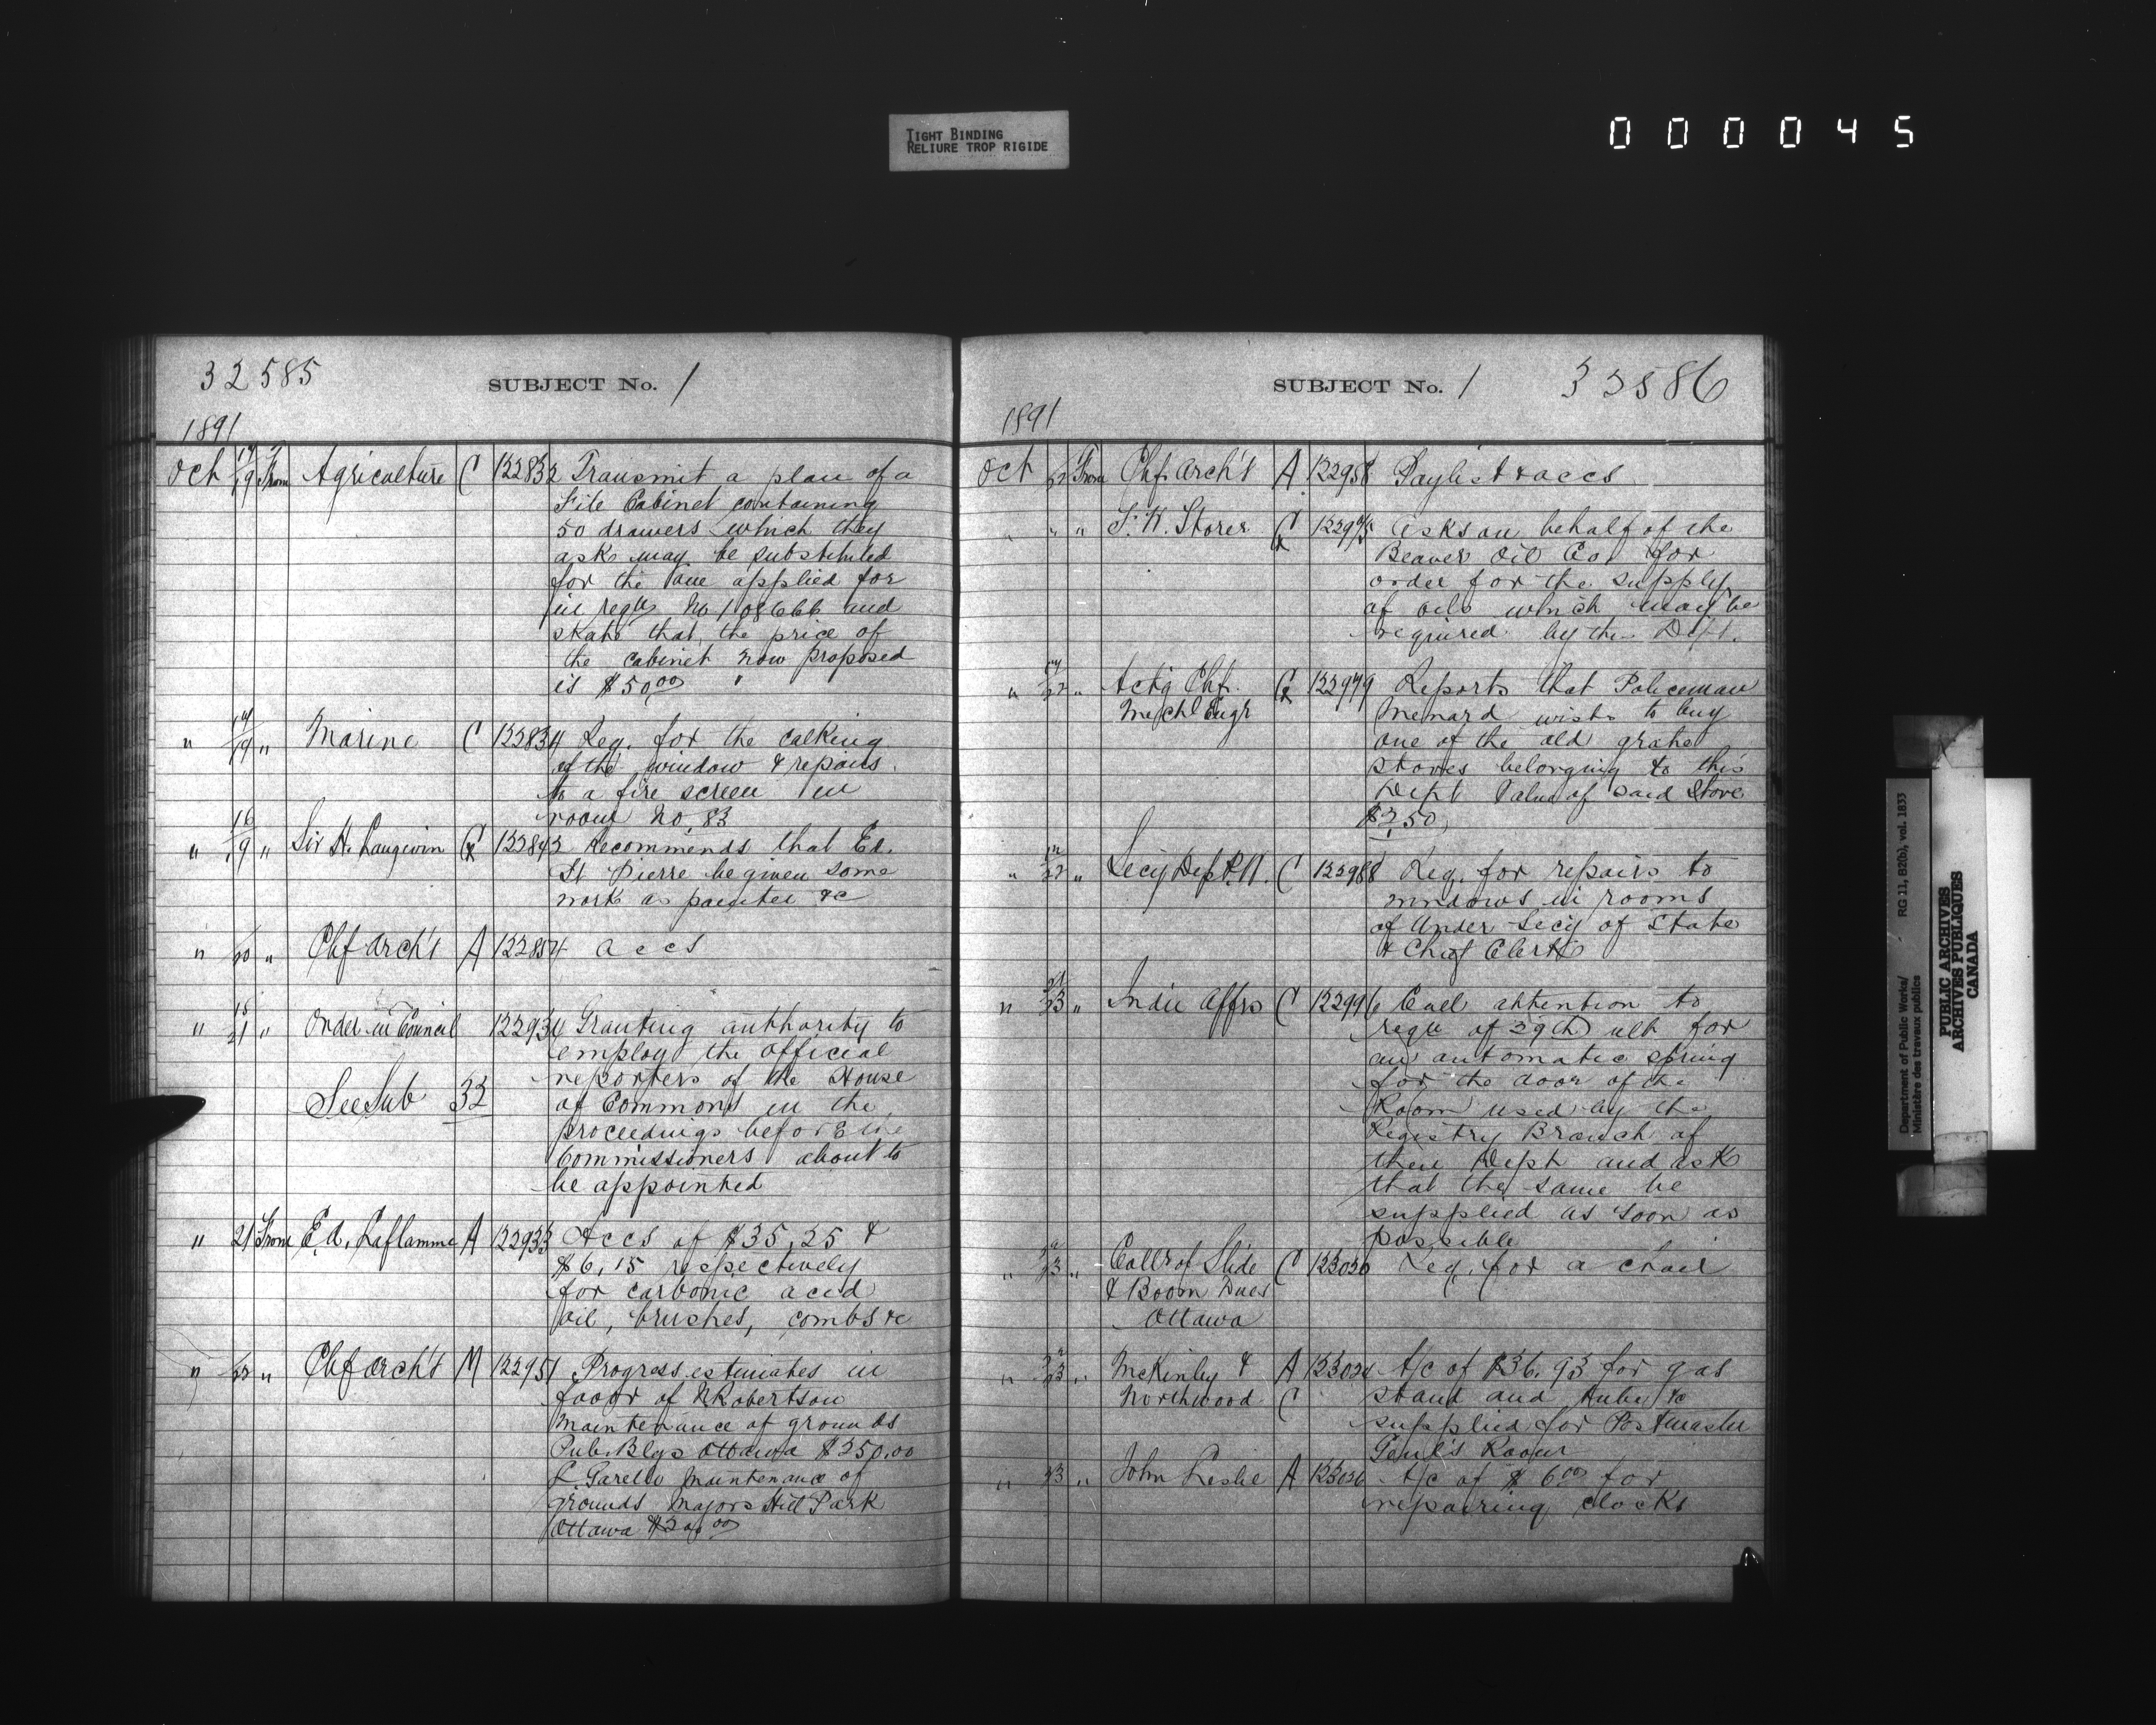 TIGHT BINDING
RELIURE TROP RIGIDE
000045
32585 SUBJECT No. 1
1891
Oct 17/19 From Agriculture C 122832 Transmit a plan of a
File Cabinet containing
50 drawers which they
ask may be substituted
for the one applied for
in reqn No 108666 and
state that the price of
the cabinet now proposed
is $50.00
" 17/19 " Marine C 122834 Req. for the calking
of the window & repairs
to a fire screen in
room No. 83
" 16/19 " Sir H. Langevin C 122843 Recommends that Ed.
St Pierre be given some
work as painter &c
" 20 " Chf Arch't A 122854 accs
" 15/21 " Order in Council 122934 Granting authority to
employ the official
reporters of the House
See Sub 32 of Commons in the
proceedings before the
Commissioners about to
be appointed
" 21 From E. A. Laflamme A 122933 Accs of $35.25 &
$6.15 respectively
for carbonic acid
oil, brushes, combs &c
" 22 " Chf Arch't M 122951 Progress estimates in
favor of N Robertson
Maintenance of grounds
Pub. Blgs Ottawa $350.00
Maintenance of
grounds Majors Hill Park
Ottawa
SUBJECT No. 1 32586
1891
Oct 22 From Chf. Arch't A 122958 Paylist & accs
" " " Storer C Asks on behalf of the
Beaver Oil Co. for
order for the supply
of oils which may be
required by the Dept.
" 17/22 " Act'g Chf. 122979 Reports that Policeman
Mechl Engr Menard wish to buy
one of the old grate
stoves belonging to this
Dept Value of said Stove
$2.50
" 22 " Secy Dept P.W. C 122988 Req. for repairs to
windows in rooms
of Under Secy of State
& Chief Clerk
" 21/23 " Indn Affrs C 122996 Call attention to
reqn of 29th ult for
an automatic spring
for the door of the
Room used by the
Registry Branch of
their Dept and ask
that the same be
supplied as soon as
possible
" 23 " Collr of Slide C 123030 Req. for a chair
& Boom Dues
Ottawa
" 23 " McKinley & A A/c of $36.93 for gas
Northwood C stand and tube &c
supplied for Postmaster
Genl's Room
" 23 " John Leslie A 123036 A/c of $6.00 for
repairing clocks
Department of Public Works/ RG 11, B2(b), vol. 1833
Ministère des travaux publics
PUBLIC ARCHIVES
ARCHIVES PUBLIQUES
CANADA